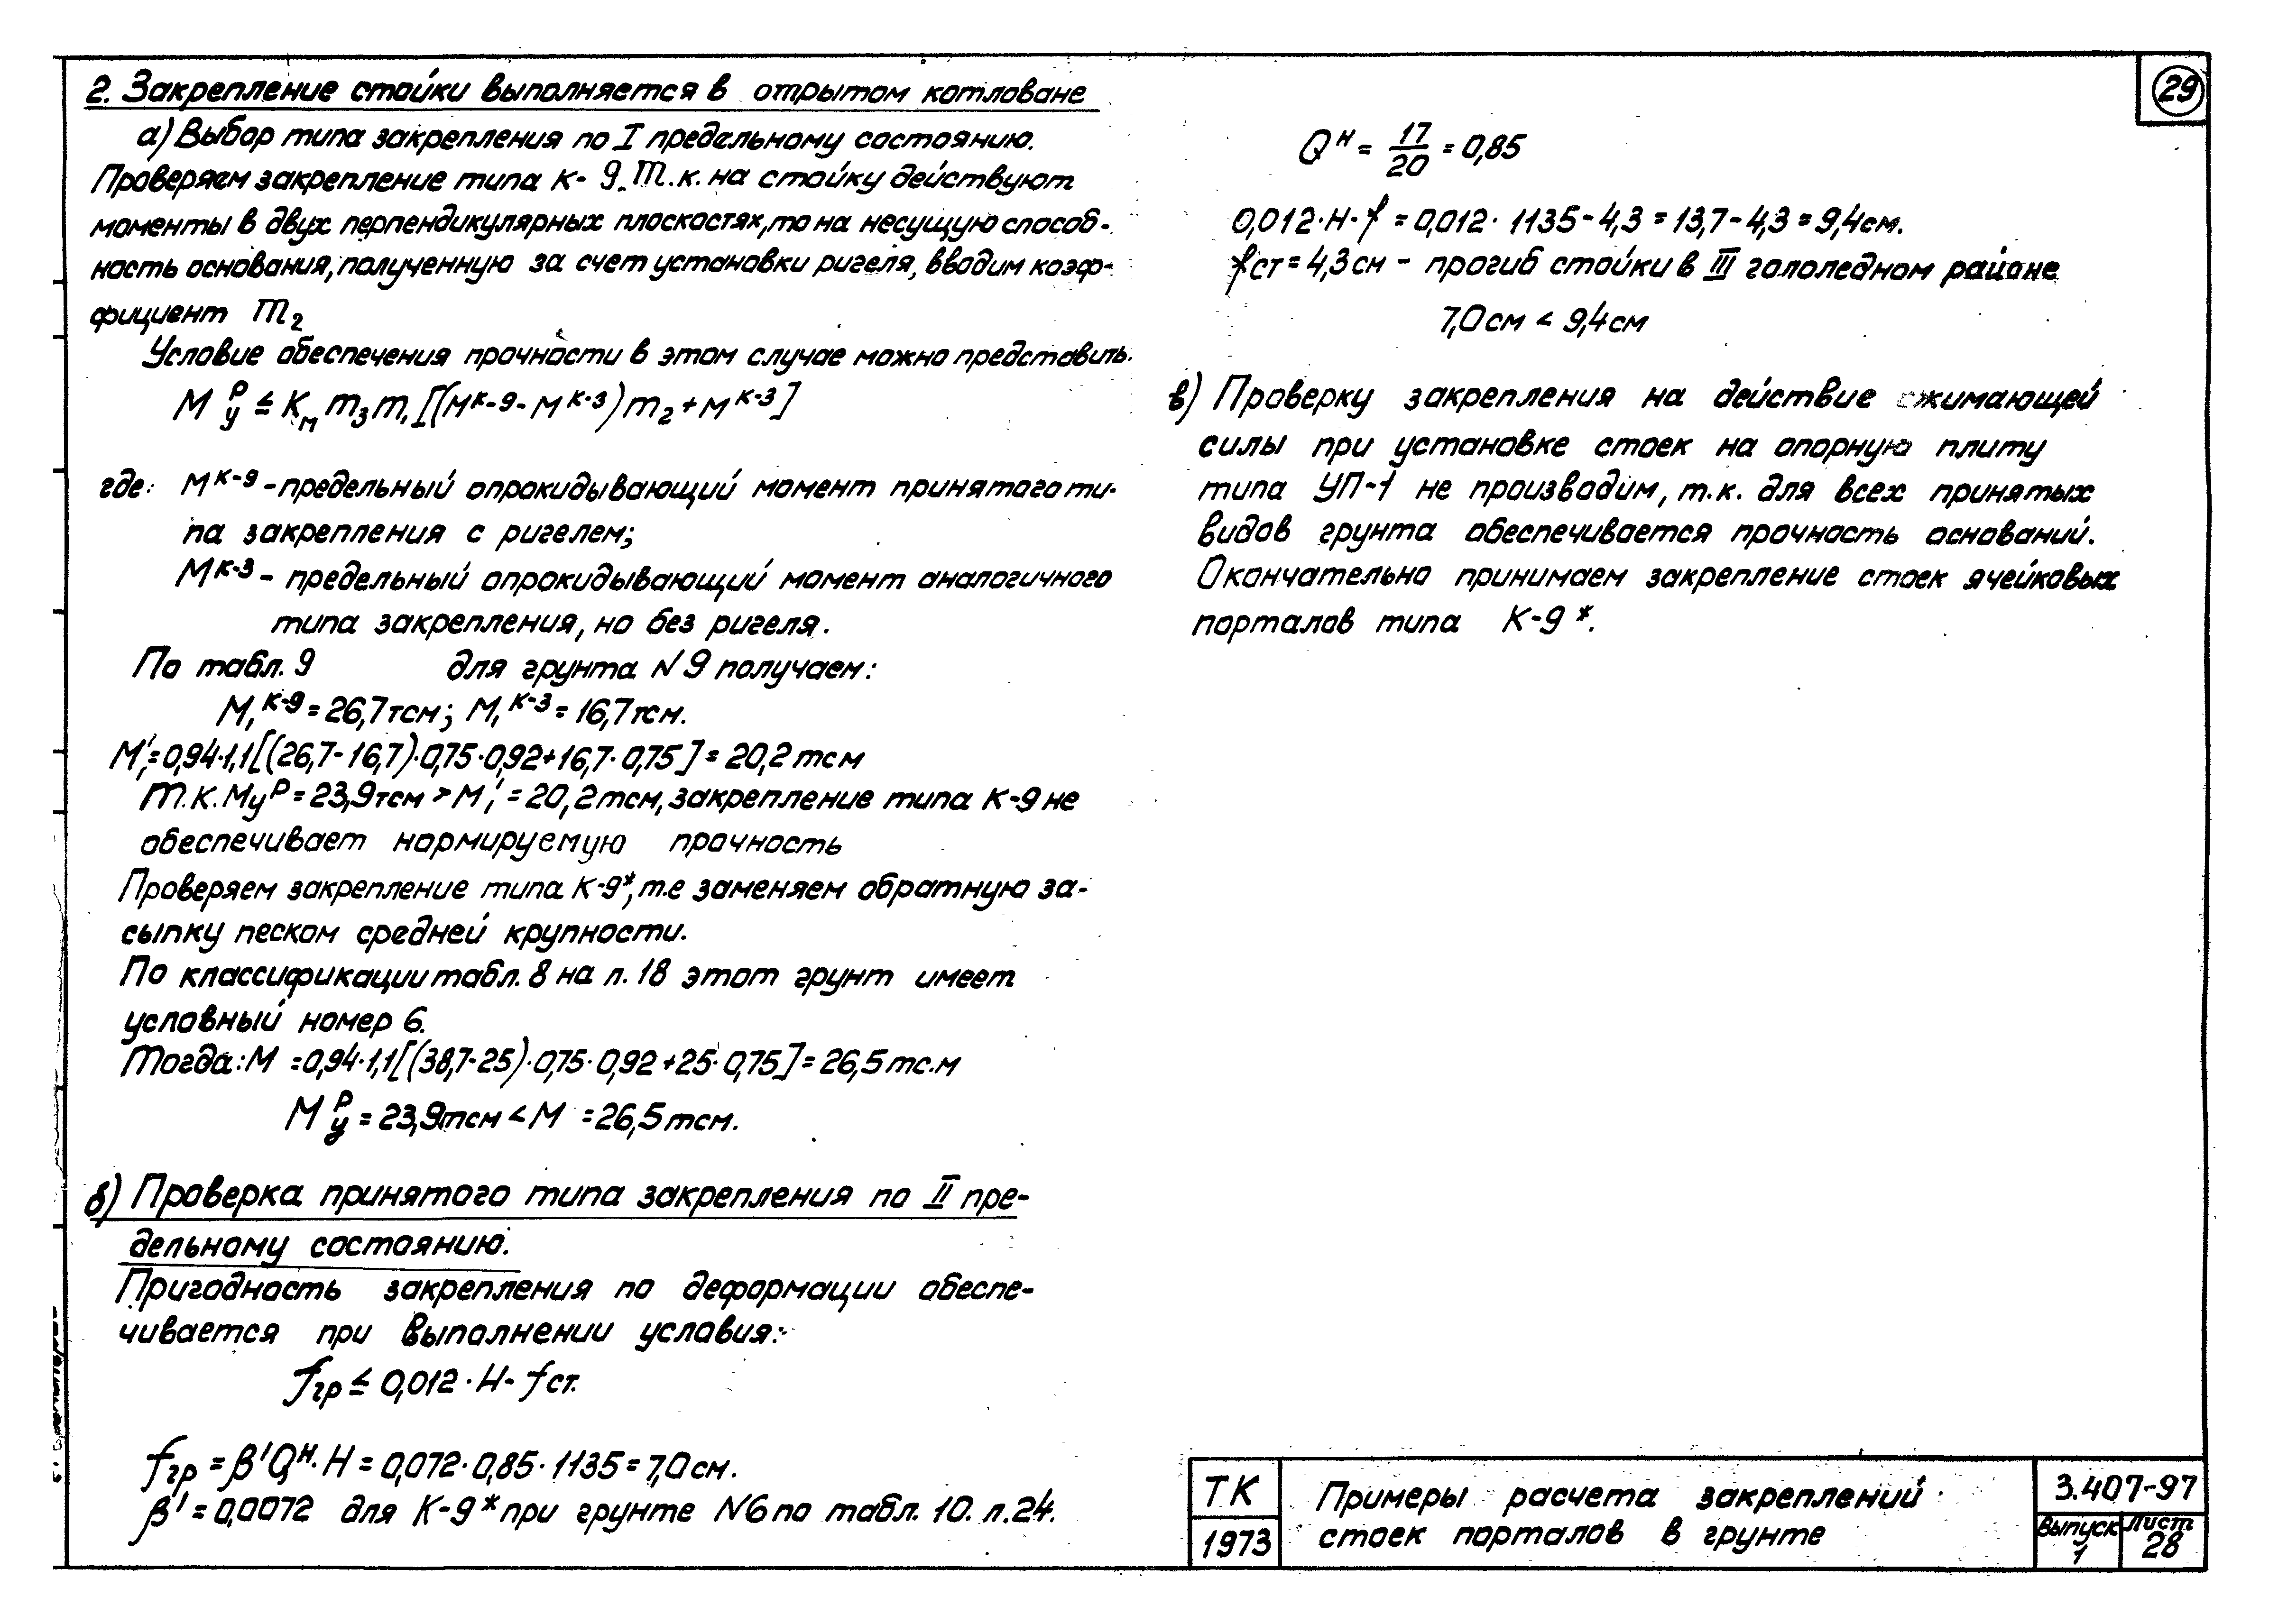 2. Закрепление стойки выполняется в отрытом котловане
а) Выбор типа закрепления по I предельному состоянию.
Проверяем закрепление типа К-9. Т.к. на стойку действуют
моменты в двух перпендикулярных плоскостях, то на несущую способ-
ность основания, полученную за счет установки ригеля, вводим коэф-
фициент m₂
Условие обеспечения прочности в этом случае можно представить:
M ᵖᵧ ≤ Kₘ m₃ m₁ [(Mᴷ⁻⁹ - Mᴷ⁻³) m₂ + Mᴷ⁻³]
где: Mᴷ⁻⁹ - предельный опрокидывающий момент принятого ти-
па закрепления с ригелем;
Mᴷ⁻³ - предельный опрокидывающий момент аналогичного
типа закрепления, но без ригеля.
По табл. 9 для грунта N 9 получаем:
M₁ᴷ⁻⁹ = 26,7 тсм; M₁ᴷ⁻³ = 16,7 тсм.
M₁' = 0,94·1,1[(26,7-16,7)·0,75·0,92+16,7·0,75] = 20,2 тсм
Т.К. Mᵧᵖ = 23,9 тсм > M₁' = 20,2 тсм, закрепление типа К-9 не
обеспечивает нормируемую прочность
Проверяем закрепление типа К-9*, т.е заменяем обратную за-
сыпку песком средней крупности.
По классификации табл. 8 на л. 18 этот грунт имеет
условный номер 6.
Тогда: M = 0,94·1,1[(38,7-25)·0,75·0,92+25·0,75] = 26,5 тс.м
M ᵖᵧ = 23,9 тсм < M = 26,5 тсм.
б) Проверка принятого типа закрепления по II пре-
дельному состоянию.
Пригодность закрепления по деформации обеспе-
чивается при выполнении условия:
fгр ≤ 0,012 · H - fст.
fгр = β'Qᴴ·H = 0,072·0,85·1135 = 7,0 см.
β' = 0,0072 для К-9* при грунте N6 по табл. 10. л.24.
29
Qᴴ = 17/20 = 0,85
0,012·H-f = 0,012· 1135-4,3 = 13,7-4,3 = 9,4 см.
fст = 4,3 см - прогиб стойки в III гололедном районе
7,0 см < 9,4 см
в) Проверку закрепления на действие сжимающей
силы при установке стоек на опорную плиту
типа УП-1 не производим, т.к. для всех принятых
видов грунта обеспечивается прочность оснований.
Окончательно принимаем закрепление стоек ячейковых
порталов типа К-9*.
ТК
1973
Примеры расчета закреплений
стоек порталов в грунте
3.407-97
Выпуск 1
Лист 28